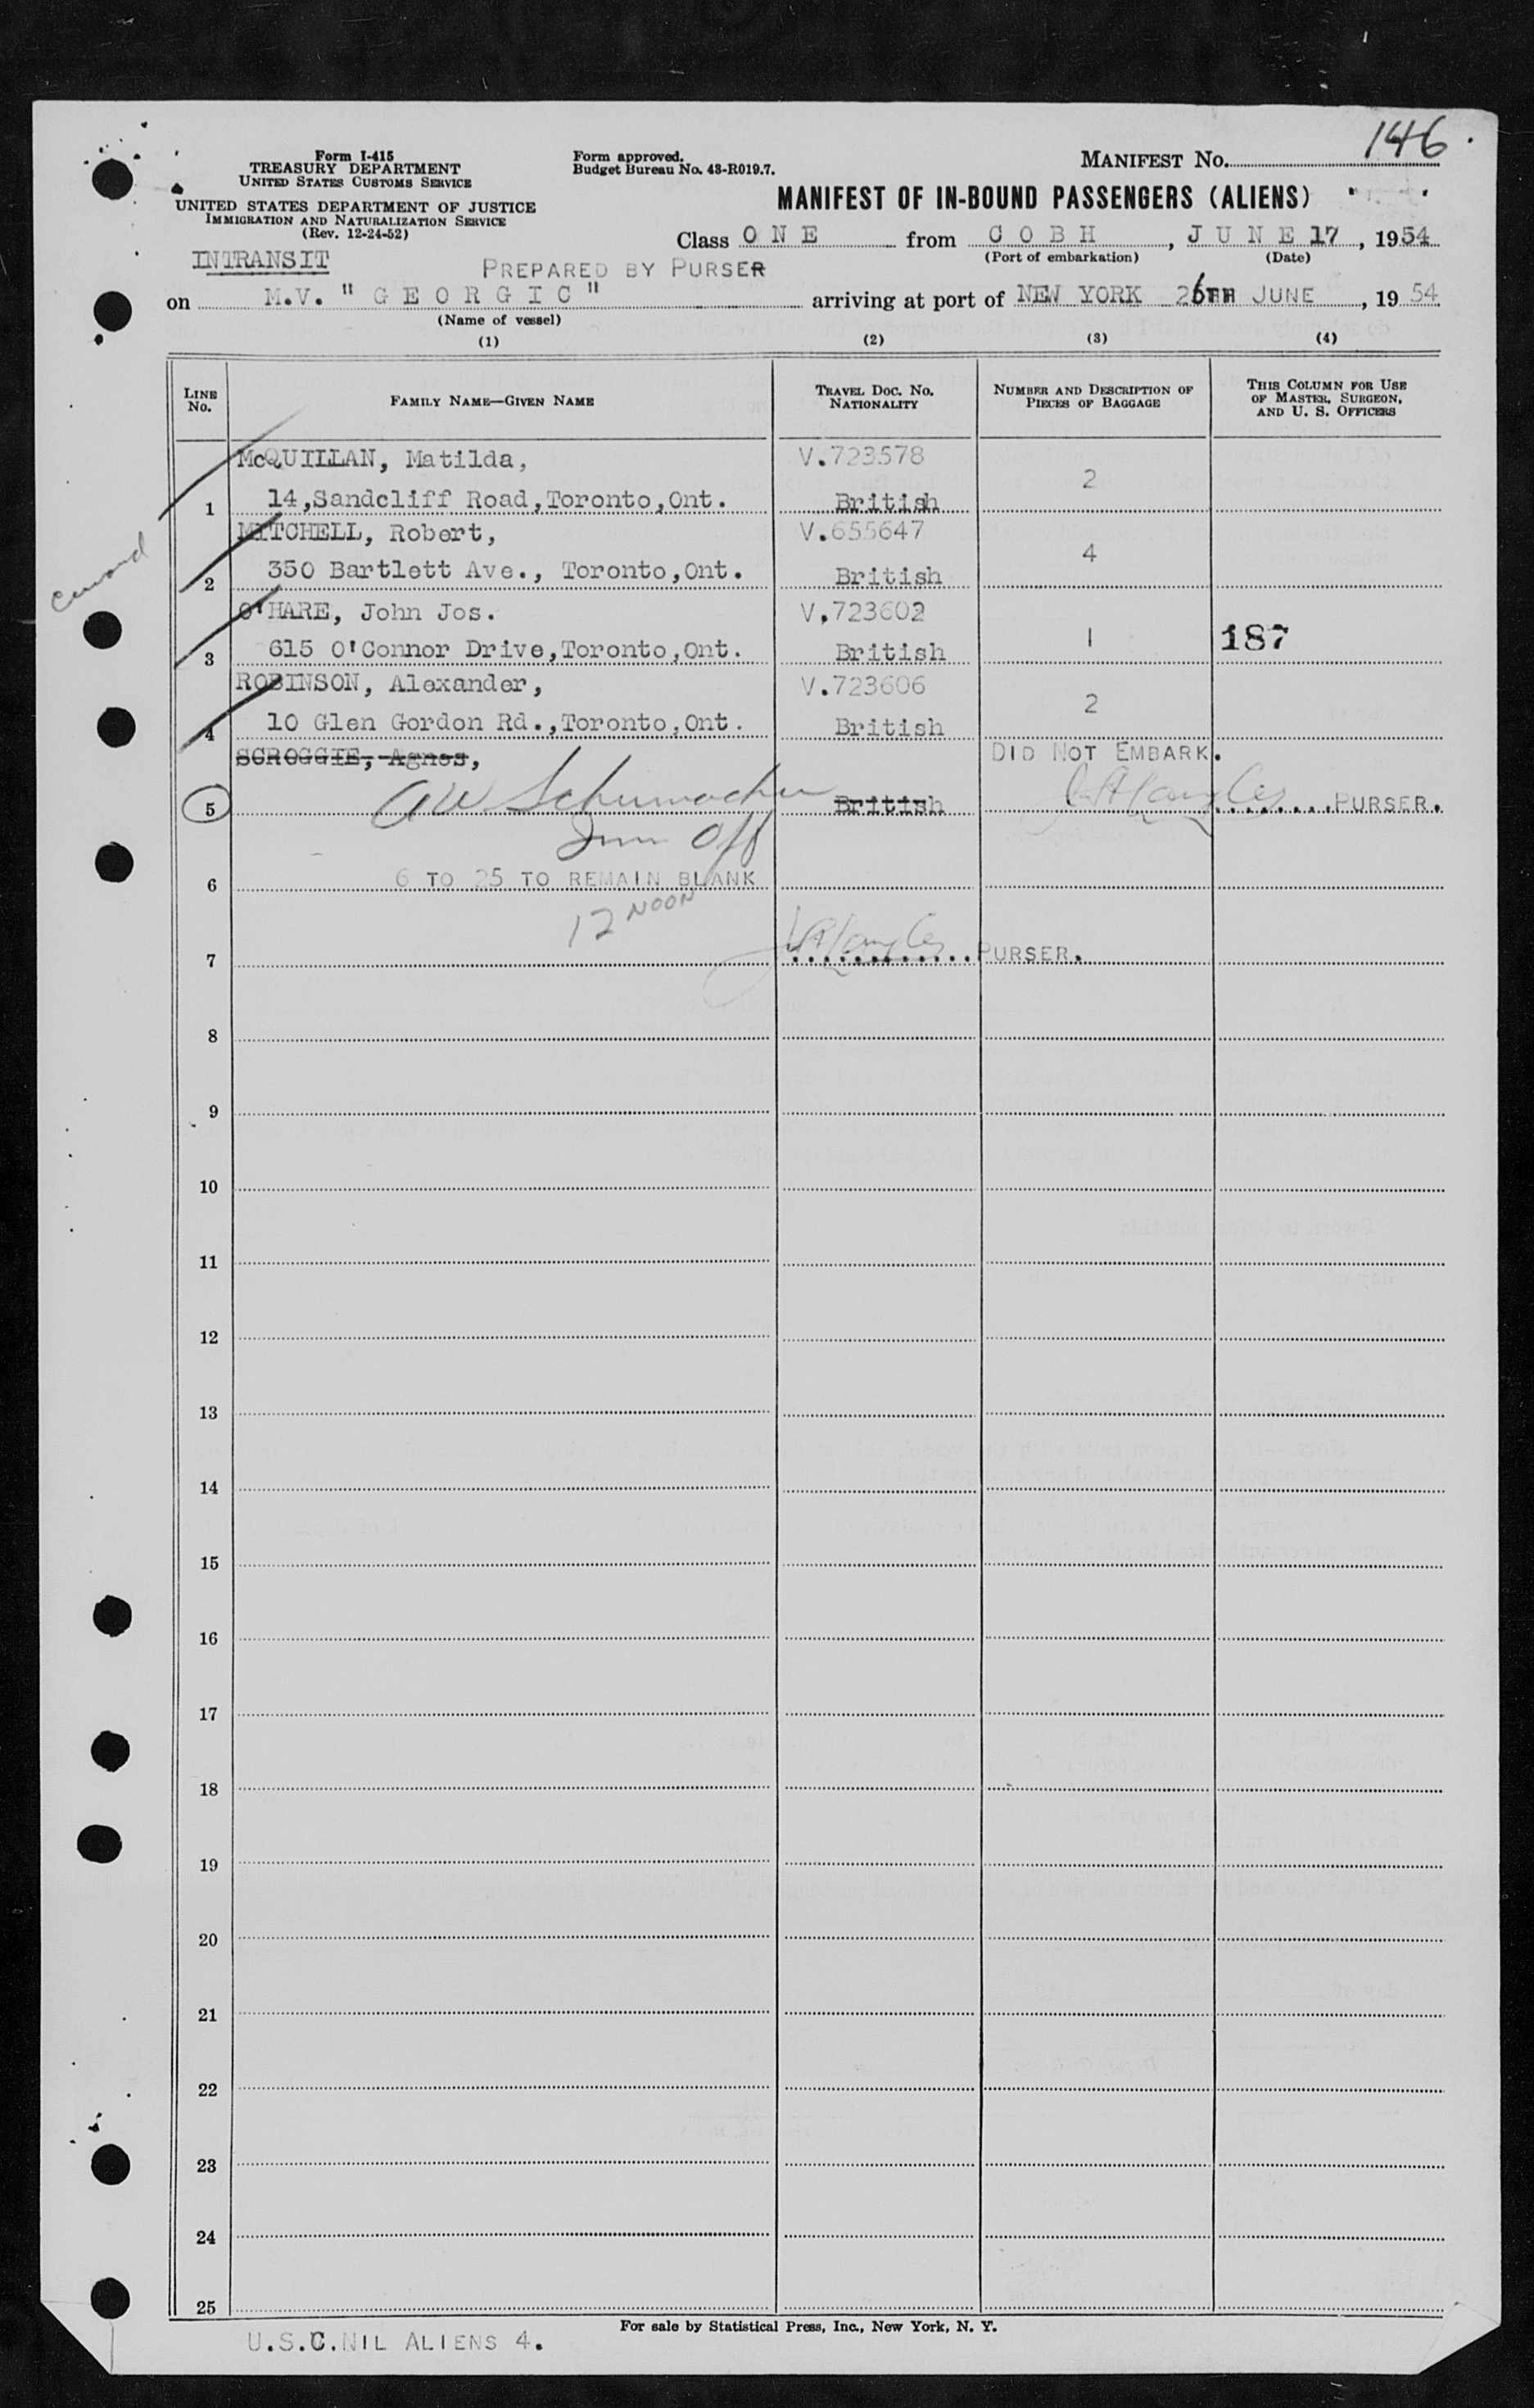 146
Form I-415
TREASURY DEPARTMENT
UNITED STATES CUSTOMS SERVICE
UNITED STATES DEPARTMENT OF JUSTICE
IMMIGRATION AND NATURALIZATION SERVICE
(Rev. 12-24-52)
Form approved.
Budget Bureau No. 43-R019.7.
MANIFEST No.
MANIFEST OF IN-BOUND PASSENGERS (ALIENS)
Class O N E from C O B H , J U N E 17 , 1954
(Port of embarkation) (Date)
INTRANSIT PREPARED BY PURSER
on M.V. " G E O R G I C " arriving at port of NEW YORK 26TH JUNE , 19 54
(Name of vessel)
(1) (2) (3) (4)
LINE No. FAMILY NAME—GIVEN NAME TRAVEL DOC. No. NATIONALITY NUMBER AND DESCRIPTION OF PIECES OF BAGGAGE THIS COLUMN FOR USE OF MASTER, SURGEON, AND U. S. OFFICERS
McQUILLAN, Matilda, V.723578 2
1 14,Sandcliff Road,Toronto,Ont. British
MITCHELL, Robert, V.655647 4
2 350 Bartlett Ave., Toronto,Ont. British
O'HARE, John Jos. V.723602 1 187
3 615 O'Connor Drive,Toronto,Ont. British
ROBINSON, Alexander, V.723606 2
4 10 Glen Gordon Rd.,Toronto,Ont. British
SCROGGIE, Agnes, DID NOT EMBARK.
5 AW Schumacher British PURSER.
Imm Off
6 6 TO 25 TO REMAIN BLANK
12 NOON
7 PURSER.
8
9
10
11
12
13
14
15
16
17
18
19
20
21
22
23
24
25
For sale by Statistical Press, Inc., New York, N. Y.
U.S.C.NIL ALIENS 4.